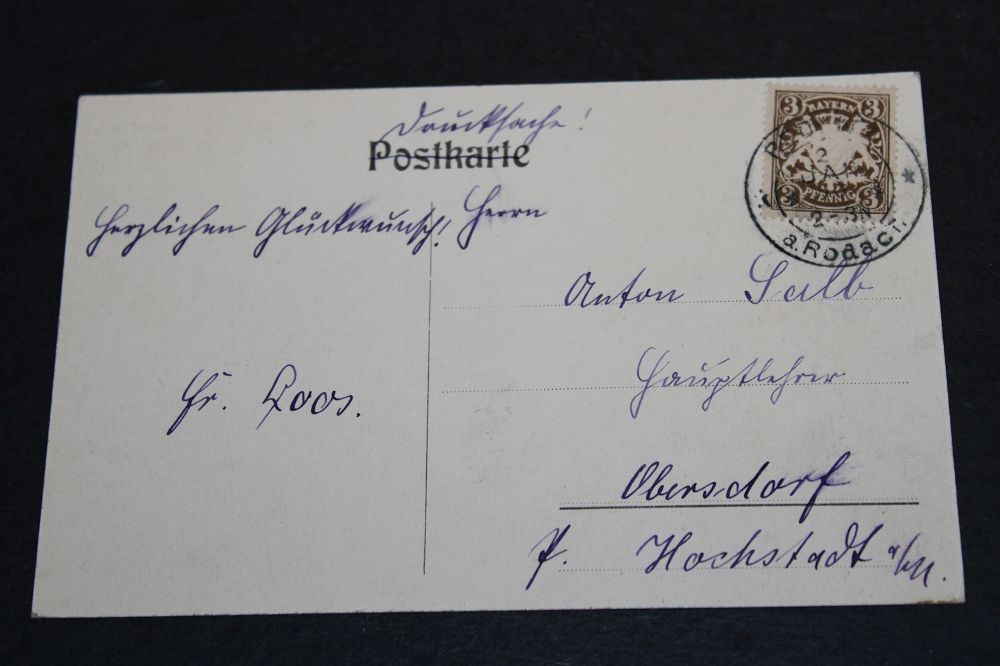 Drucksache!
Postkarte
3 BAYERN 3
3 PFENNIG 3
2 JAN
a. Rodach
Herzlichen Glückwunsch!
Herrn
Anton Salb
Hauptlehrer
Fr. Loos.
Obersdorf
P. Hochstadt a/M.